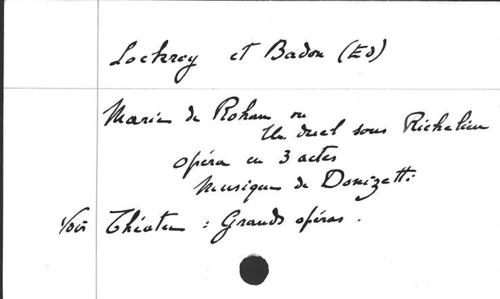 Lockroy et Badon (Ed)
Marie de Rohan ou
Un duel sous Richelieu
opéra en 3 actes
Musique de Donizetti
Voir Théâtre : Grands opéras.